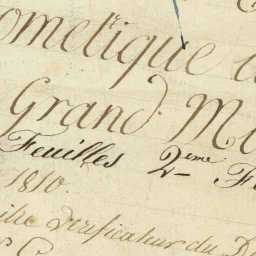 ometrique
Grand M
Feuilles 2eme F
1810.
verificateur du D